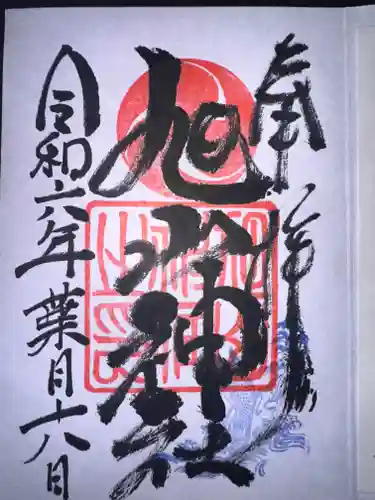 奉拝
旭山神社
令和六年葉月十八日